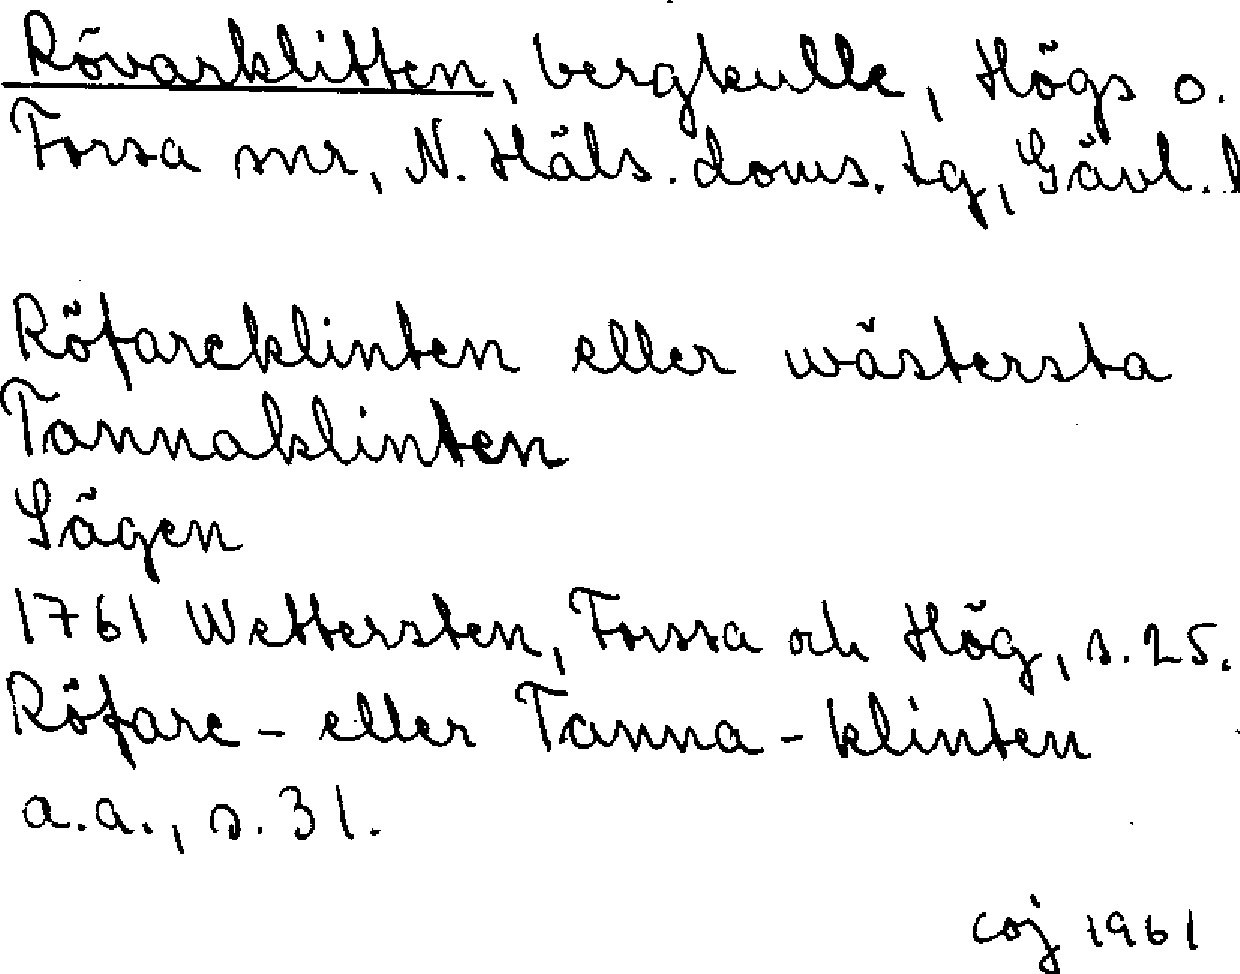 Rövarklitten, bergkulle, Högs o.
Forsa snr, N. Häls. doms. tg, Gävl. l
Röfareklinten eller wästersta
Tannaklinten
Sägen
1761 Wettersten, Forssa och Hög, s. 25.
Röfare - eller Tanna - klinten
a.a., s. 31.
coj 1961